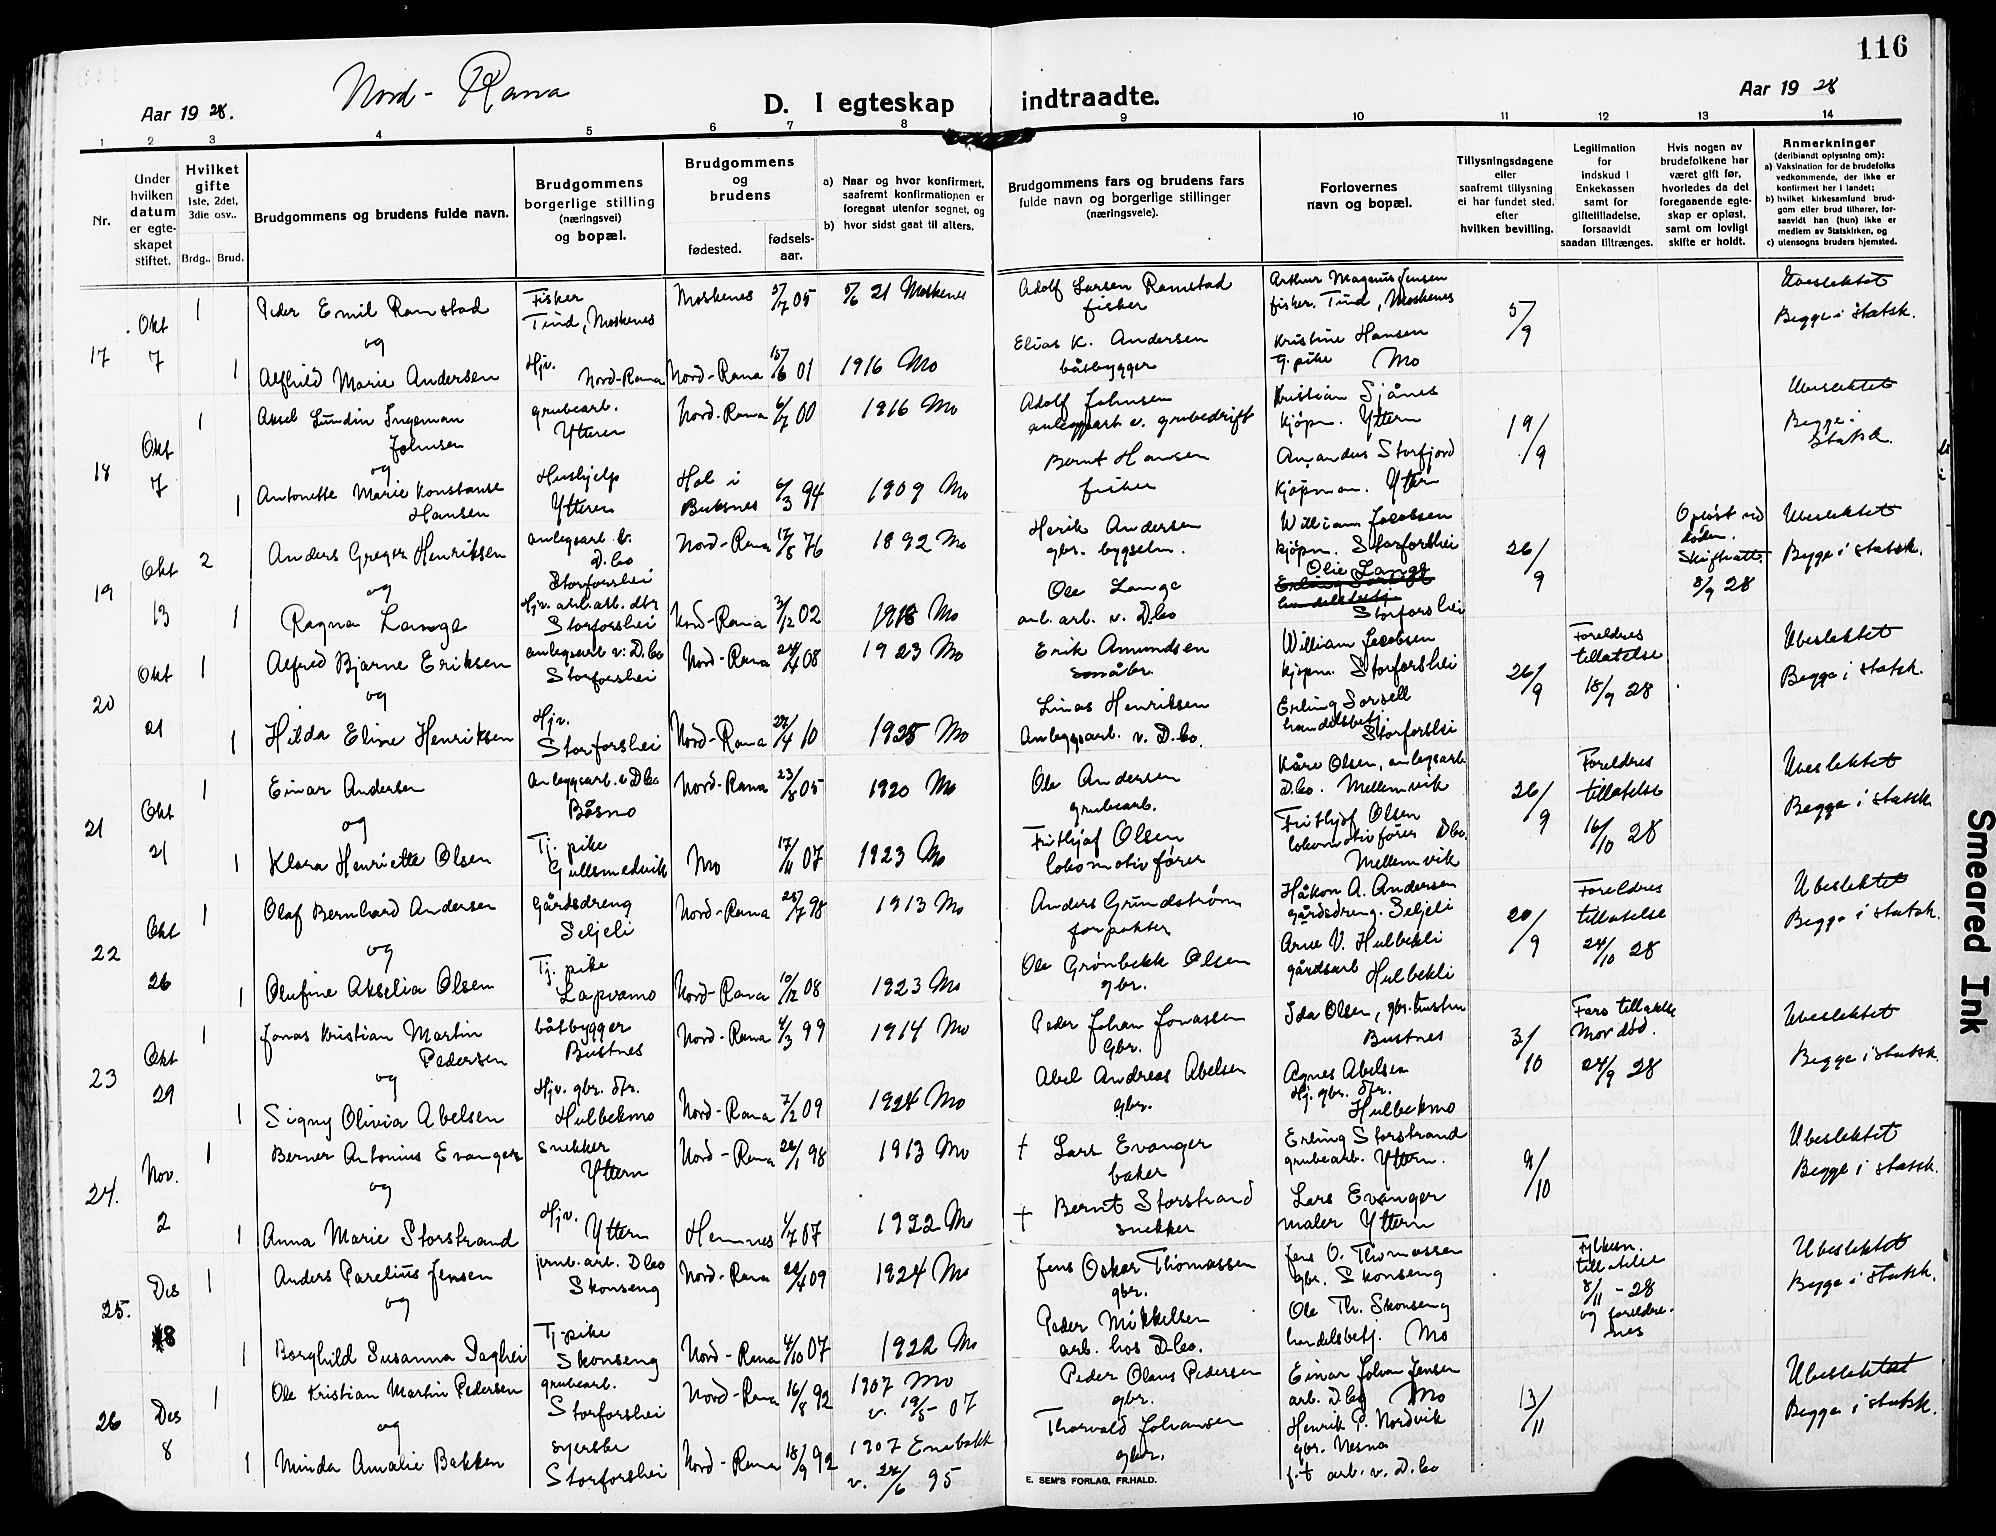 116
Nord- Rana
Aar 19 28.
D. I egteskap indtraadte.
Aar 19 28
1 2 3 4 5 6 7 8 9 10 11 12 13 14
Nr.
Under hvilken datum er egteskapet stiftet.
Hvilket gifte 1ste, 2det, 3die osv..
Brdg.. Brud.
Brudgommens og brudens fulde navn.
Brudgommens borgerlige stilling (næringsvei) og bopæl.
Brudgommens og brudens
fødested. fødsels-aar.
a) Naar og hvor konfirmert, saafremt konfirmationen er foregaat utenfor sognet, og
b) hvor sidst gaat til alters.
Brudgommens fars og brudens fars fulde navn og borgerlige stillinger (næringsveie).
Forlovernes navn og bopæl.
Tillysningsdagene eller saafremt tillysning ei har fundet sted, efter hvilken bevilling.
Legitimation for indskud i Enkekassen samt for giftetilladelse, forsaavidt saadan tiltrænges.
Hvis nogen av brudefolkene har været gift før, hvorledes da det foregaaende egteskap er opløst, samt om lovligt skifte er holdt.
Anmerkninger
(deriblandt oplysning om):
a) Vaksination for de brudefolks vedkommende, der ikke er konfirmert her i landet;
b) hvilket kirkesamfund brudgom eller brud tilhører, forsaavidt han (hun) ikke er medlem av Statskirken, og
c) utensogns bruders hjemsted.
17 Okt 7 1 Peder Emil Ramstad Fisker Tind, Moskenes Moskenes 5/7 05 5/6 21 Moskenes Adolf Larsen Ramstad fisker Arthur Magnus Jensen fisker. Tind, Moskenes 5/9 Ubeslektet Begge i statsk.
og
1 Alfhild Marie Andersen Hjv. Nord-Rana Nord-Rana 15/6 01 1916 Mo Elias K. Andersen båtbygger Kristine Hansen Tj. pike Mo
18 Okt 7 1 Aksel Lundin Ingeman Johnsen grubearb. Ytteren Nord-Rana 6/7 00 1916 Mo Adolf Johnsen anleggsarb v. grubedrift Kristian Sjånes kjøpm. Yttern 19/9 Ubeslektet Begge i statsk.
og
1 Antonette Marie Konstanse Hansen Hushjelp Ytteren Hol i Buksnes 6/3 94 1909 Mo Bernt Hansen fisker Amandus Storfjord kjøpman. Yttern
19 Okt 13 2 Anders Greger Henriksen anlegsarb. v. D.co Storforshei Nord-Rana 17/8 76 1892 Mo Henrik Andersen gbr. bygselm. William Jacobsen kjøpm. Storforshei 26/9 Opløst ved døden. Skifteatt. 8/9 28 Ubeslektet Begge i statsk.
og
1 Ragna Lange Hjv. anl.arb. dtr Storforshei Nord-Rana 3/12 02 1918 Mo Ole Lange anl. arb. v. D.co Olie Lange Storforshei
20 Okt 21 1 Alfred Bjarne Eriksen anlegsarb v. D.co Storforshei Nord-Rana 24/4 08 1923 Mo Erik Amundsen småbr. William Jacobsen kjøpm. Storforshei 26/9 Foreldres tillatelse 18/9 28 Ubeslektet Begge i statsk.
og
1 Hilda Eline Henriksen Hjv. Storforshei Nord-Rana 4 10 1925 Mo Linas Henriksen Anleggsarb. v. D.co. Erling Sorsell handelsbetj. Storforshei
21 Okt 21 1 Einar Andersen anleggsarb. v D.co Båsmo Nord-Rana 23/8 05 1920 Mo Ole Andersen grubearb. Kåre Olsen, anlegsarb D.co. Mellemvik 26/9 Foreldres tillatelse 16/10 28 Ubeslektet Begge i statsk.
og
1 Klara Henriette Olsen Tj. pike Gullsmedvik Mo 17/11 07 1923 Mo Frithjof Olsen lokomotivfører Frithjof Olsen lokomotivfører D.co. Mellemvik
22 Okt 26 1 Olaf Bernhard Andersen Gårdsdreng Seljeli Nord-Rana 28/7 98 1913 Mo Anders Grundstrøm forpakter Håkon A. Andersen gårdsdreng. Seljeli 20/9 Foreldres tillatelse 24/10 28 Ubeslektet Begge i statsk.
og
1 Olufine Akselia Olsen Tj. pike Lapvamo Nord-Rana 10/12 08 1923 Mo Ole Grønbekk Olsen gbr. Arne V. Hulbekli gårdsarb Hulbekli
23 Okt 29 1 Jonas Kristian Martin Pedersen båtbygger Bustnes Nord-Rana 4/3 99 1914 Mo Peder Johan Jonassen Gbr. Ida Olsen, gbr. hustru Bustnes 3/10 Fars tillatelse Mor død. 24/9 28 Ubeslektet Begge i statsk.
og
1 Signy Olivia Abelsen Hjv. gbr. dtr. Hulbekmo Nord-Rana 7/2 09 1924 Mo Abel Andreas Abelsen gbr. Agnes Abelsen Hj. gbr. dtr. Hulbekmo
24. Nov. 2 1 Berner Antonius Evanger snekker Yttern Nord-Rana 26/1 98 1913 Mo † Lars Evanger baker Erling Storstrand grubearb. Yttern. 9/10 Ubeslektet Begge i statsk.
og
1 Anna Marie Storstrand Hjv. Yttern Hemnes 1/7 07 1922 Mo † Bernt Storstrand snekker Lars Evanger maler Yttern
25. Des 8 1 Anders Parelius Jensen jernb. arb. D.co Skonseng Nord-Rana 4 09 1924 Mo Jens Oskar Thomassen gbr. Jens O. Thomassen gbr. Skonseng Fylkesm. tillatelse 8/11 - 28 og foreldrenes Ubeslektet Begge i statsk.
og
1 Borghild Susanna Daghei Tj-pike Skonseng Nord-Rana 4/10 07 1922 Mo Peder Mikkelsen arb. hos D.co. Ole Th. Skonseng handelsbetj. Mo
26 Des 8 1 Ole Kristian Martin Pedersen grubearb. Storforshei Nord-Rana 16/8 92 1907 Mo v. 19/5 - 07 Peder Olaus Pedersen gbr. Einar Johan Jensen arb. D.co Mo 13/11 Ubeslektet Begge i statsk.
og
1 Minda Amalie Bakken syerske Storforshei Nord-Rana 18/9 92 1907 Enebakk v. 6 95 Thorvald Johansen gbr. Henrik P. Nordvik gbr. Nesna f.t arb. v. D.co
E. SEM'S FORLAG, FR.HALD.
Smeared Ink